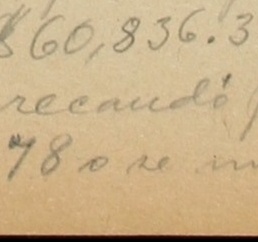 $60,836.3
recaudó
78 o se m